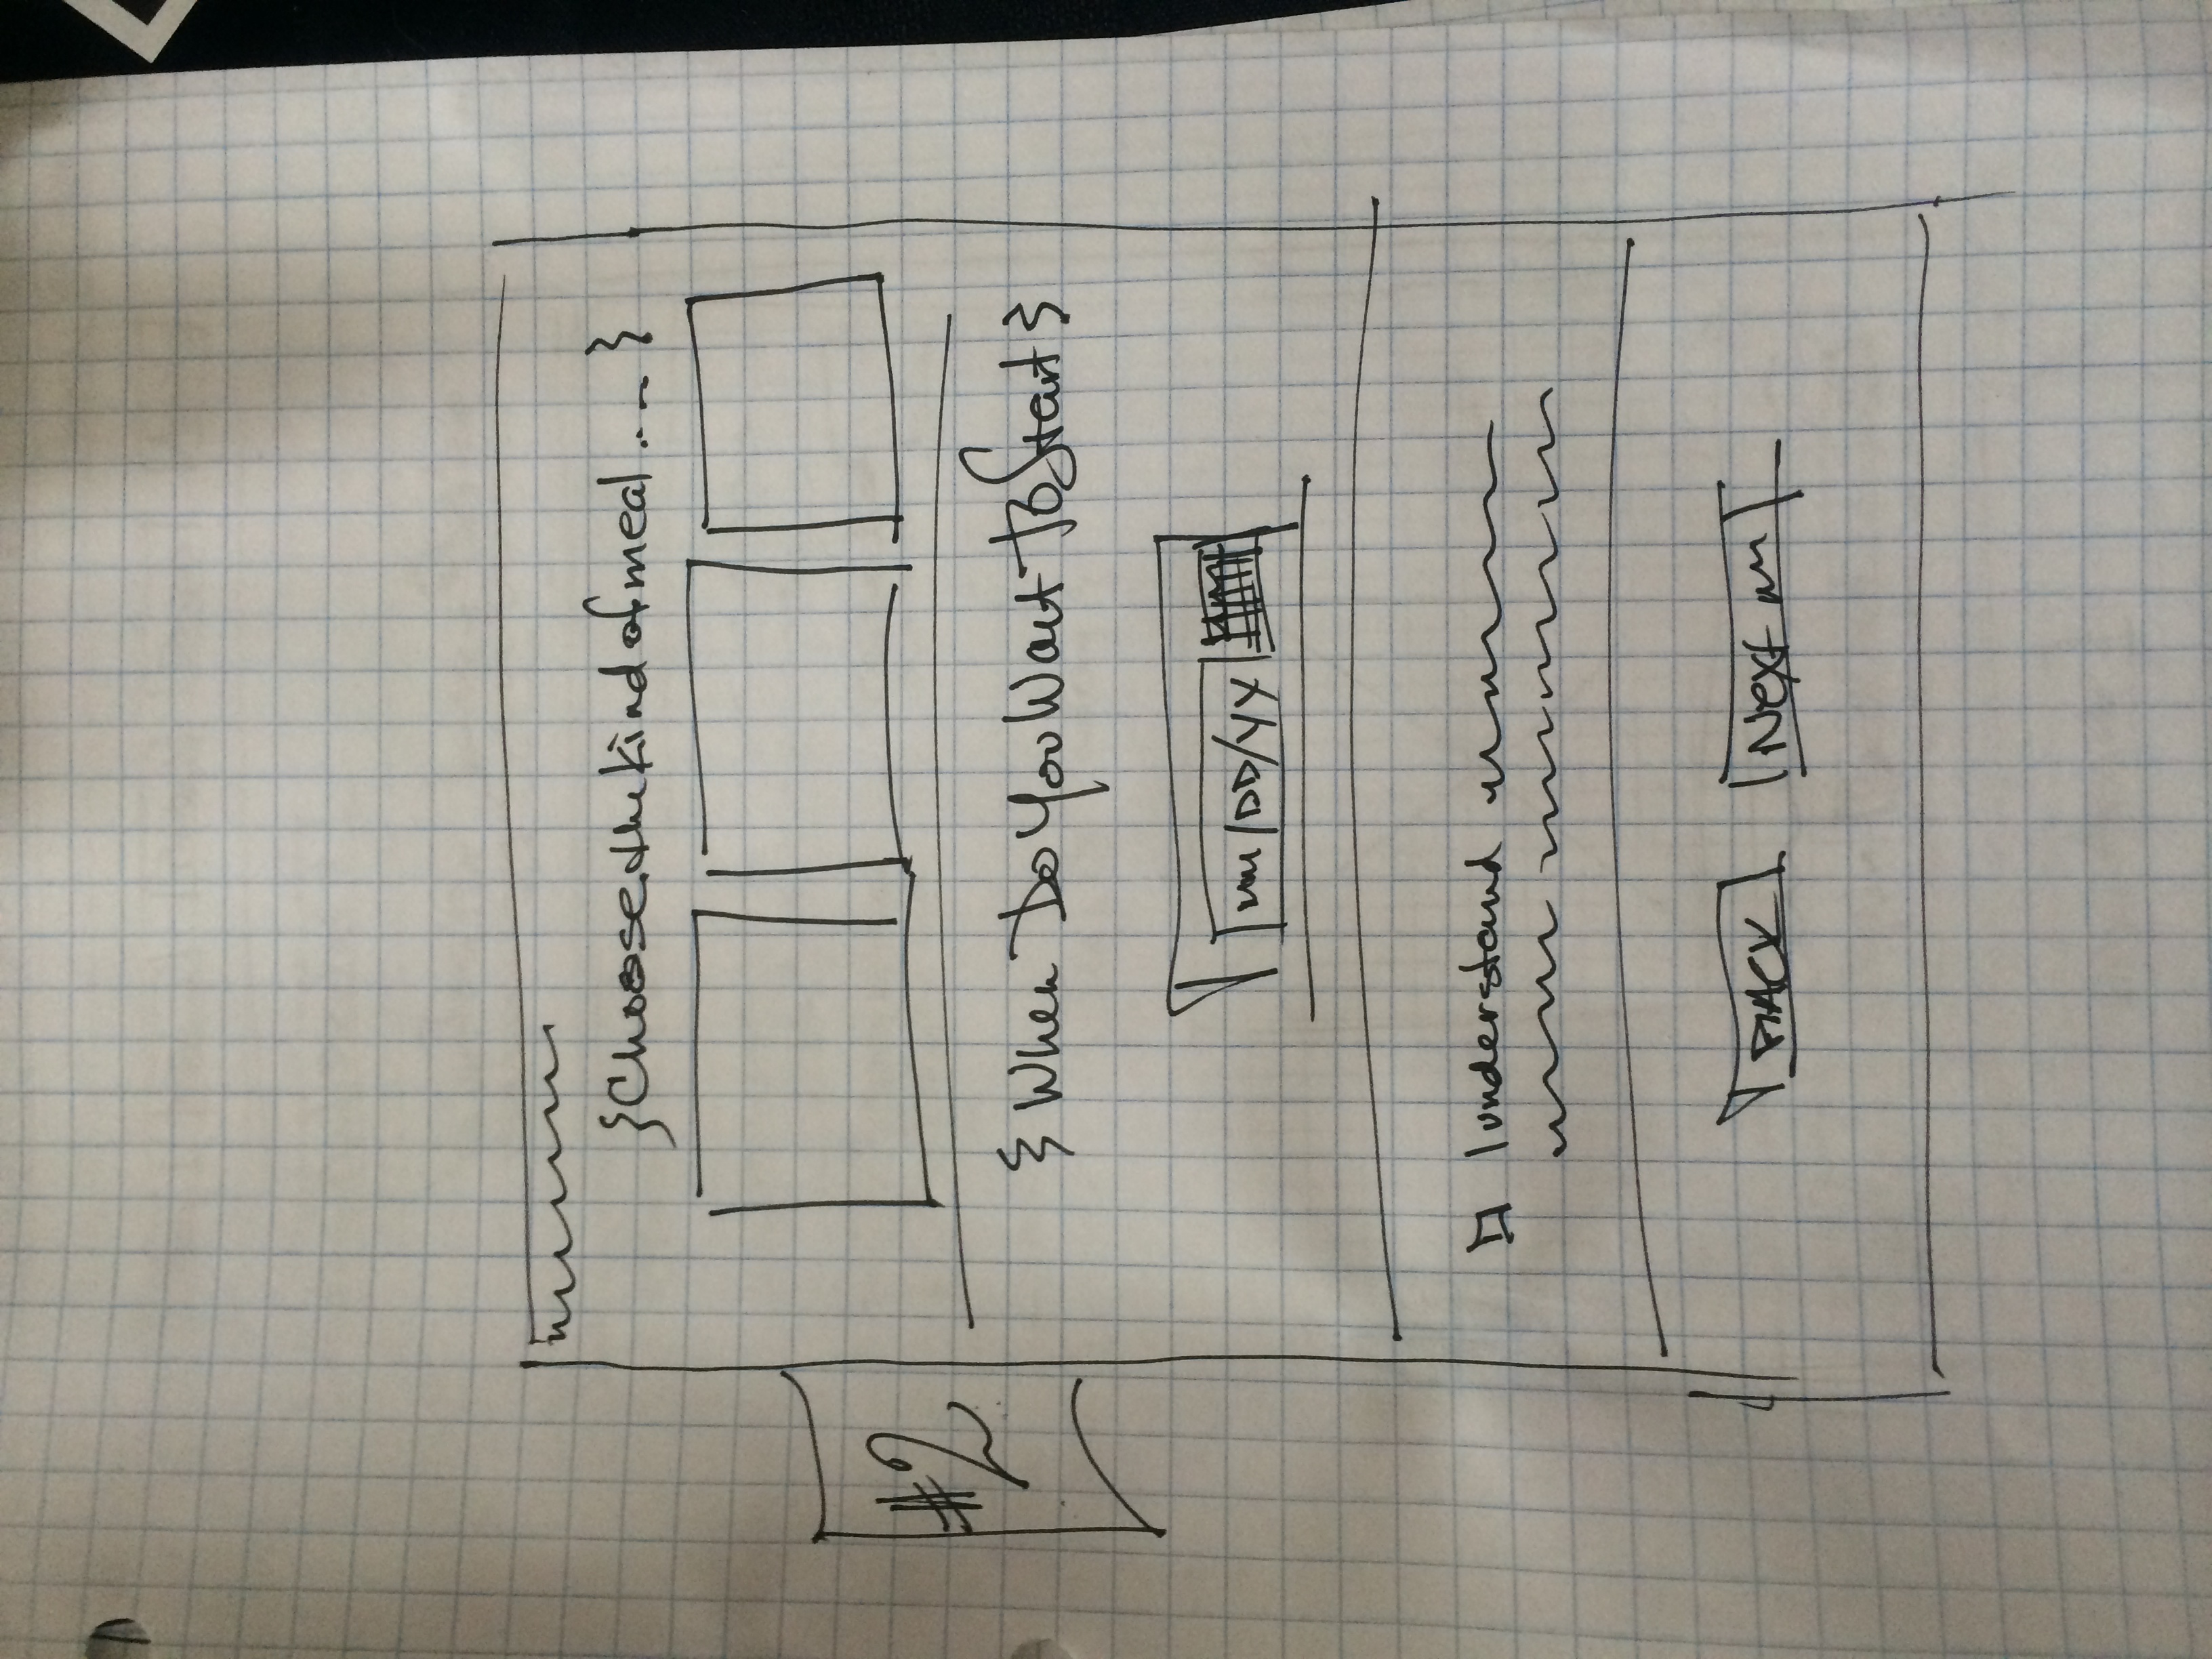 {Choose the kind of meal .... }
{ When Do You Want To Start }
mm/DD/YY
I understand
BACK
Next
#2